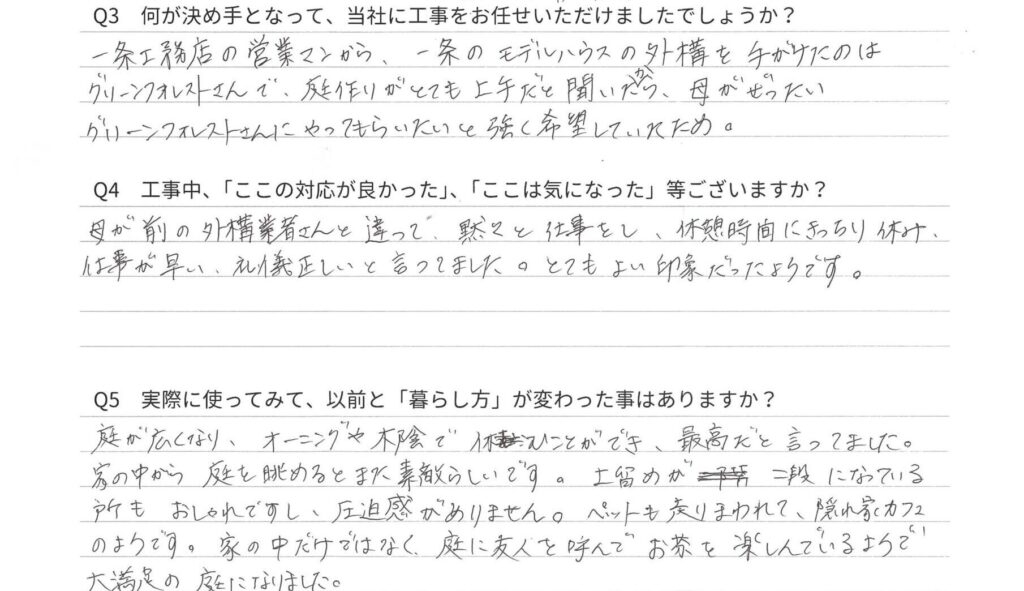 Q3 何が決め手となって、当社に工事をお任せいただけましたでしょうか？
一条工務店の営業マンから、一条のモデルハウスの外構を手がけたのは
グリーンフォレストさんで、庭作りがとても上手だと聞いたから、母がぜったい
グリーンフォレストさんにやってもらいたいと強く希望していたため。
Q4 工事中、「ここの対応が良かった」、「ここは気になった」等ございますか？
母が前の外構業者さんと違って、黙々と仕事をし、休憩時間にきっちり休み、
仕事が早い、礼儀正しいと言ってました。とてもよい印象だったようです。
Q5 実際に使ってみて、以前と「暮らし方」が変わった事はありますか？
庭が広くなり、オーニングや木陰で休むことができ、最高だと言ってました。
家の中から庭を眺めるとまた素敵らしいです。土留めが二段になっている
所もおしゃれですし、圧迫感がありません。ペットも走りまわれて、隠れ家カフェ
のようです。家の中だけではなく、庭に友人を呼んでお茶を楽しんでいるようで
大満足の庭になりました。